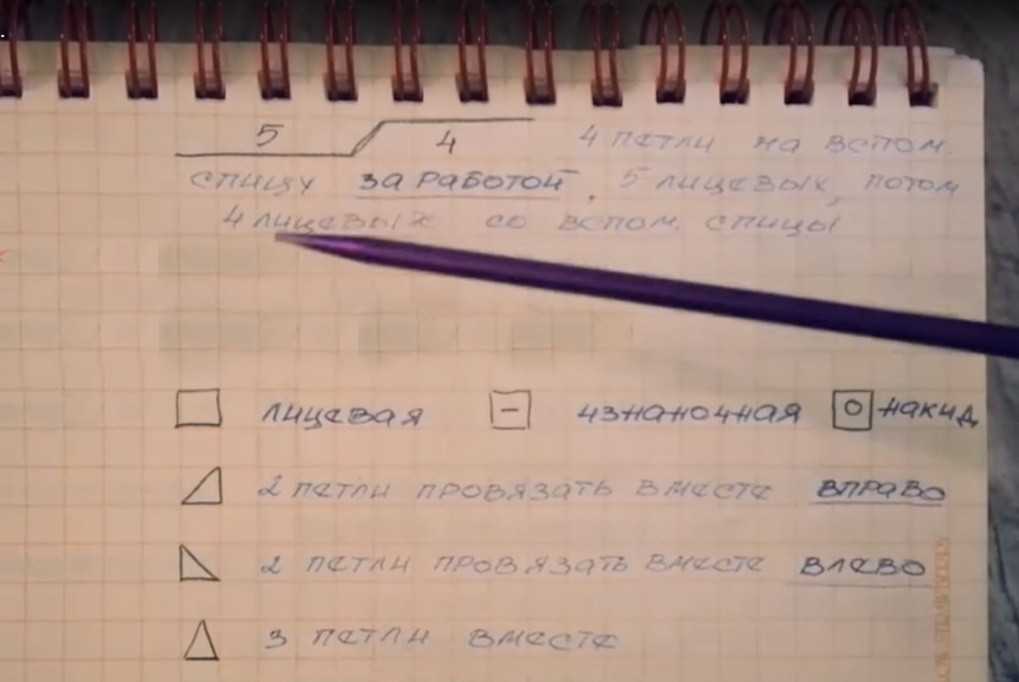 5 4 4 петли на вспом.
спицу за работой, 5 лицевых, потом
4 лицевых со вспом. спицы
лицевая изнаночная накид
2 петли провязать вместе вправо
2 петли провязать вместе влево
3 петли вместе